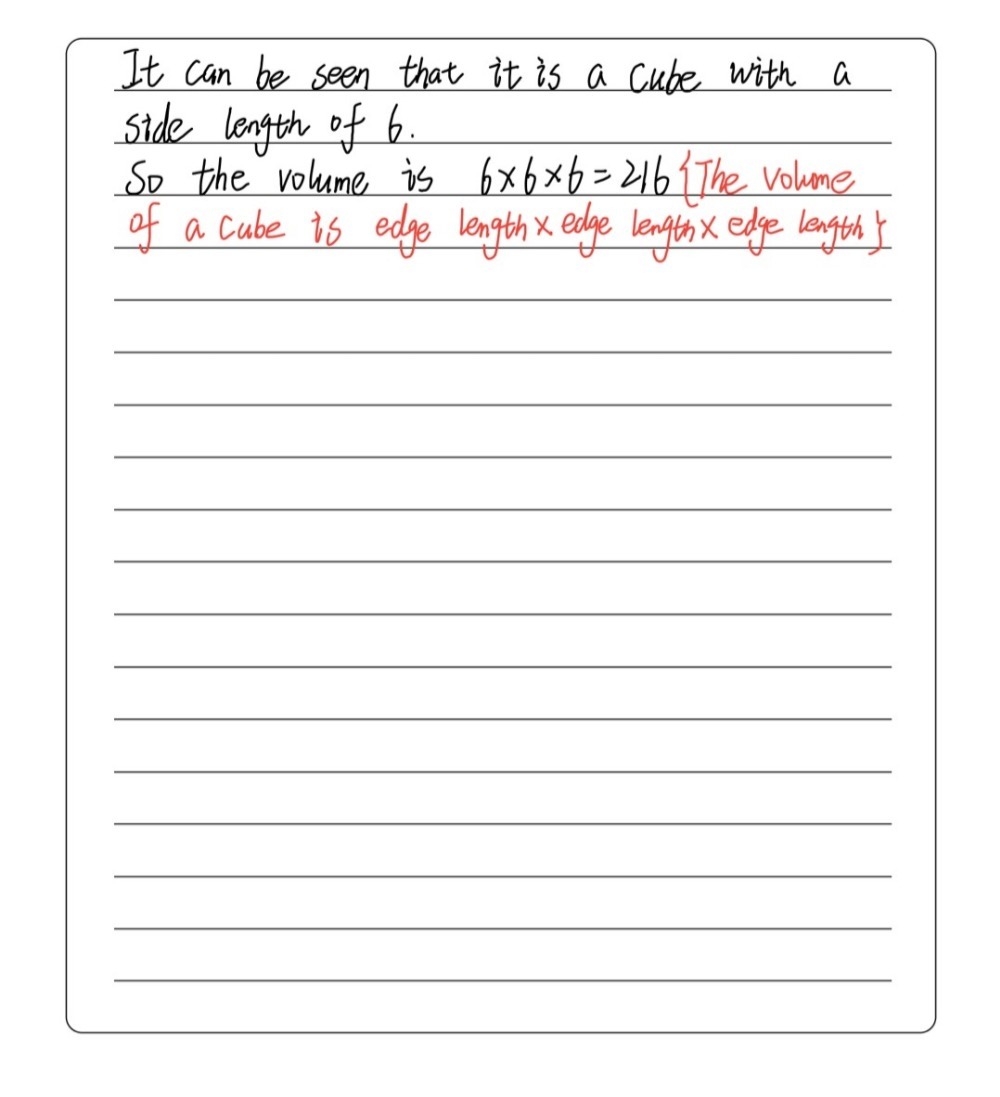 It can be seen that it is a cube with a
side length of 6.
So the volume is 6×6×6=216{The volume
of a cube is edge length×edge length×edge length}